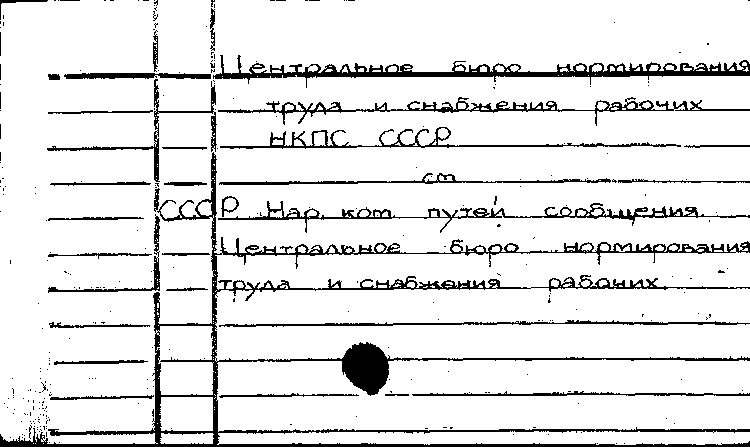 Центральное бюро нормирования
труда и снабжения рабочих
НКПС СССР
см
СССР Нар. ком. путей сообщения.
Центральное бюро нормирования
труда и снабжения рабочих.